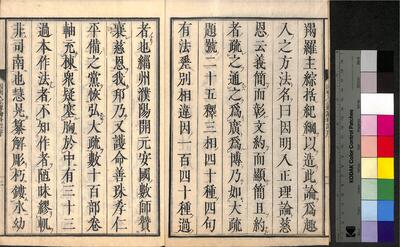 羯羅主綜括紀綱以造此論爲趣
入之方法名曰因明入正理論慈
恩云義簡而彰文約而顯簡且約
者疏之通之爲廣爲博乃如大疏
題號二十五釋三相四十種四句
有法差別相違因一百四十種過
者也緇州濮陽開元安國數師贊
襃慈恩我邦乃又護命善珠孝仁
平備之黨恢弘大疏數十百部卷
軸充棟衆疑塞胸於中有三十三
過本作法者不知作者隨昧繆軌
非司南也慧晃纂解彫朽鏤水幼
KODAK Color Control Patches